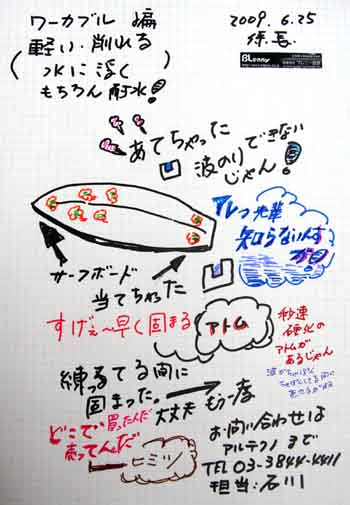 ワーカブル 編
2009.6.25
係長
BLenny
(軽い・削れる
水に浮く
もちろん耐水!)
あてちゃった
波のりできない
じゃん!
知らないんす
か?
サーフボード
当てちゃった
すげぇ~早く固まる
アトム
秒速
硬化の
アトムが
あるじゃん
練ってる間に
固まった。
大丈夫
もう一本
どこで買ったんだ
売ってんだ
ヒミツ
お問い合わせは
アルテクノまで
TEL 03-3844-4411
担当:石川